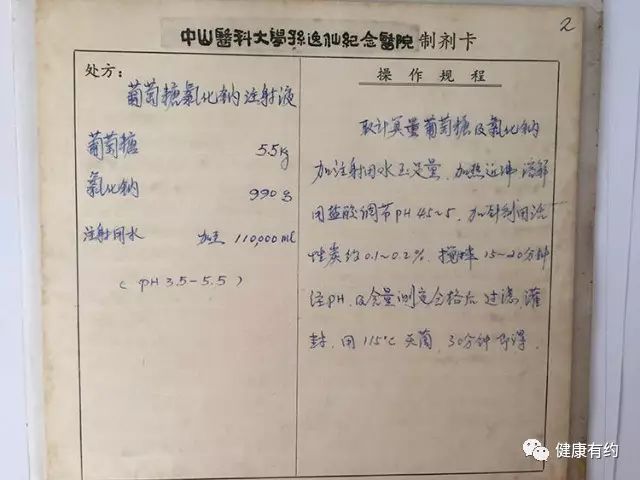 2
中山醫科大學孫逸仙紀念醫院 制剂卡
处方：
葡萄糖氯化钠注射液
葡萄糖 5.5kg
氯化钠 990g
注射用水 加至 110,000ml
( pH 3.5-5.5 )
操作规程
取计算量葡萄糖及氯化钠
加注射用水至足量.加热近沸溶解
用盐酸调节pH 4.5~5.加针剂用活
性炭约0.1~0.2%.搅拌15~20分钟
经pH.及含量测定合格后过滤.灌
封.用115℃灭菌.30分钟即得.
健康有约